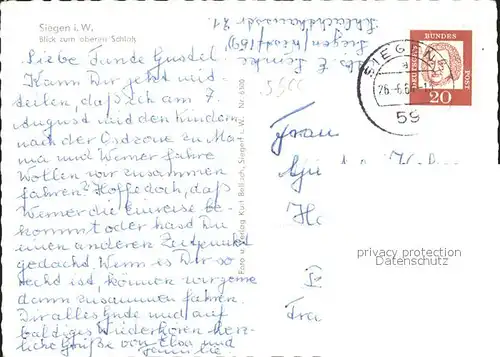 Siegen i. W.
Blick zum oberen Schloß
Liebe Tante Gustel.
Kann Dir jetzt mit-
teilen, daß ich am 7.
August mit den Kindern
nach der Ostzone zu Ma-
ma und Werner fahre
Wollen wir zusammen
fahren? Hoffe doch, daß
Werner die Einreise be-
kommt oder hast Du
einen anderen Zeitpunkt
gedacht. Wenn es Dir so
recht ist, können wir gerne
dann zusammen fahren.
Dir alles Gute und auf
baldiges Wiederhören herz-
liche Grüße von Elsa und
Familie
Foto u. Verlag Kurt Bellach, Siegen i. W. Nr. 6300
Abs. E.
Siegen
21
SIEGEN
26.-6.
59
DEUTSCHE
BUNDES
POST
20
Frau
privacy protection
Datenschutz
Fra